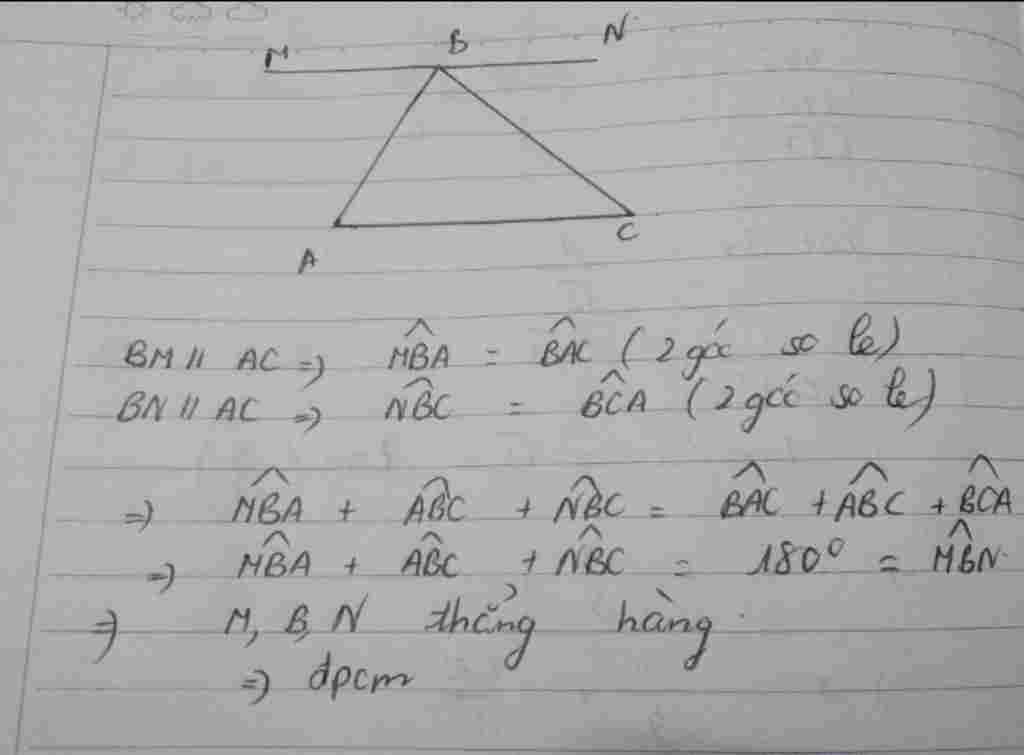 M B N
A C
BM // AC => M̂BA = B̂AC (2 góc so le)
BN // AC => N̂BC = BĈA (2 góc so le)
=> M̂BA + ÂBC + N̂BC = B̂AC + ÂBC + B̂CA
=> M̂BA + ÂBC + N̂BC = 180⁰ = M̂BN
=> M, B, N thẳng hàng.
=> đpcm